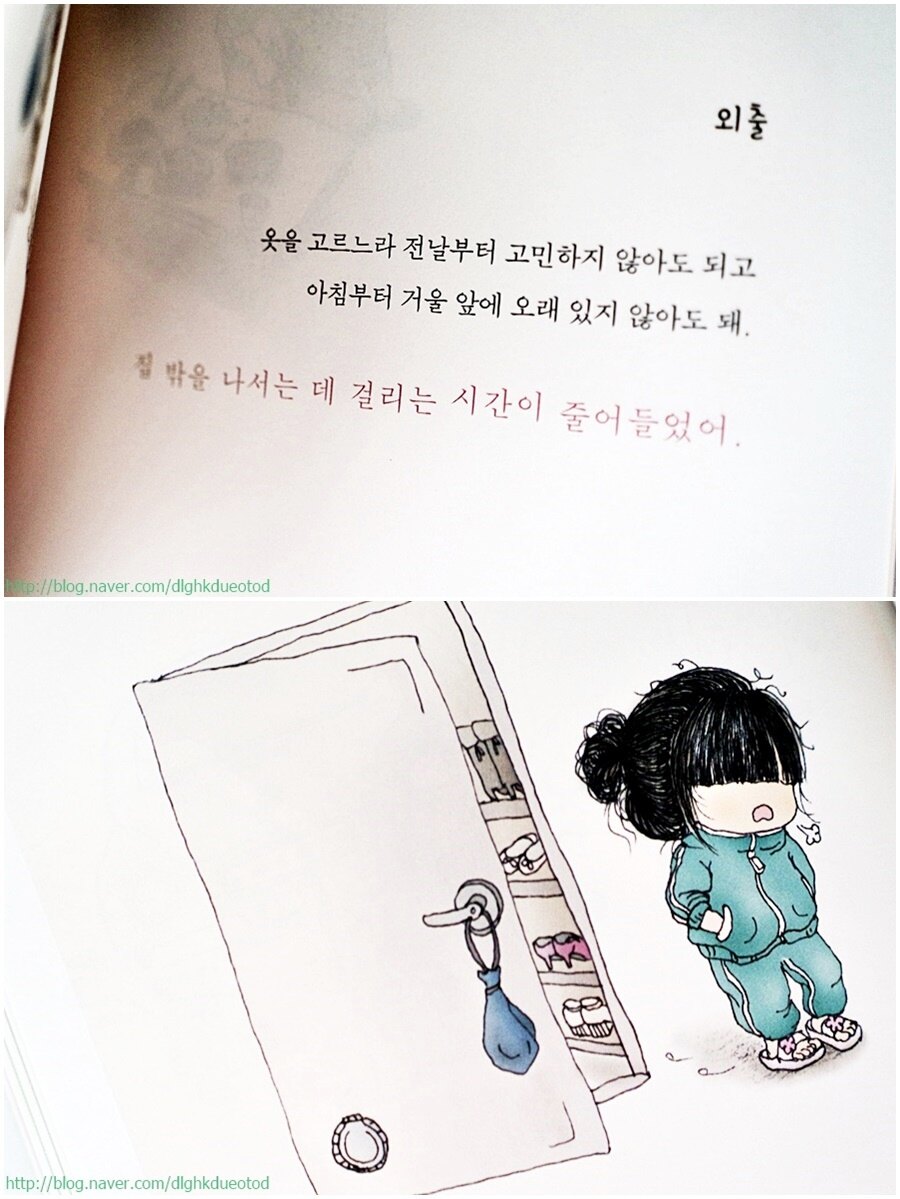 외출
옷을 고르느라 전날부터 고민하지 않아도 되고
아침부터 거울 앞에 오래 있지 않아도 돼.
집 밖을 나서는 데 걸리는 시간이 줄어들었어.
http://blog.naver.com/dlghkdueotod
http://blog.naver.com/dlghkdueotod